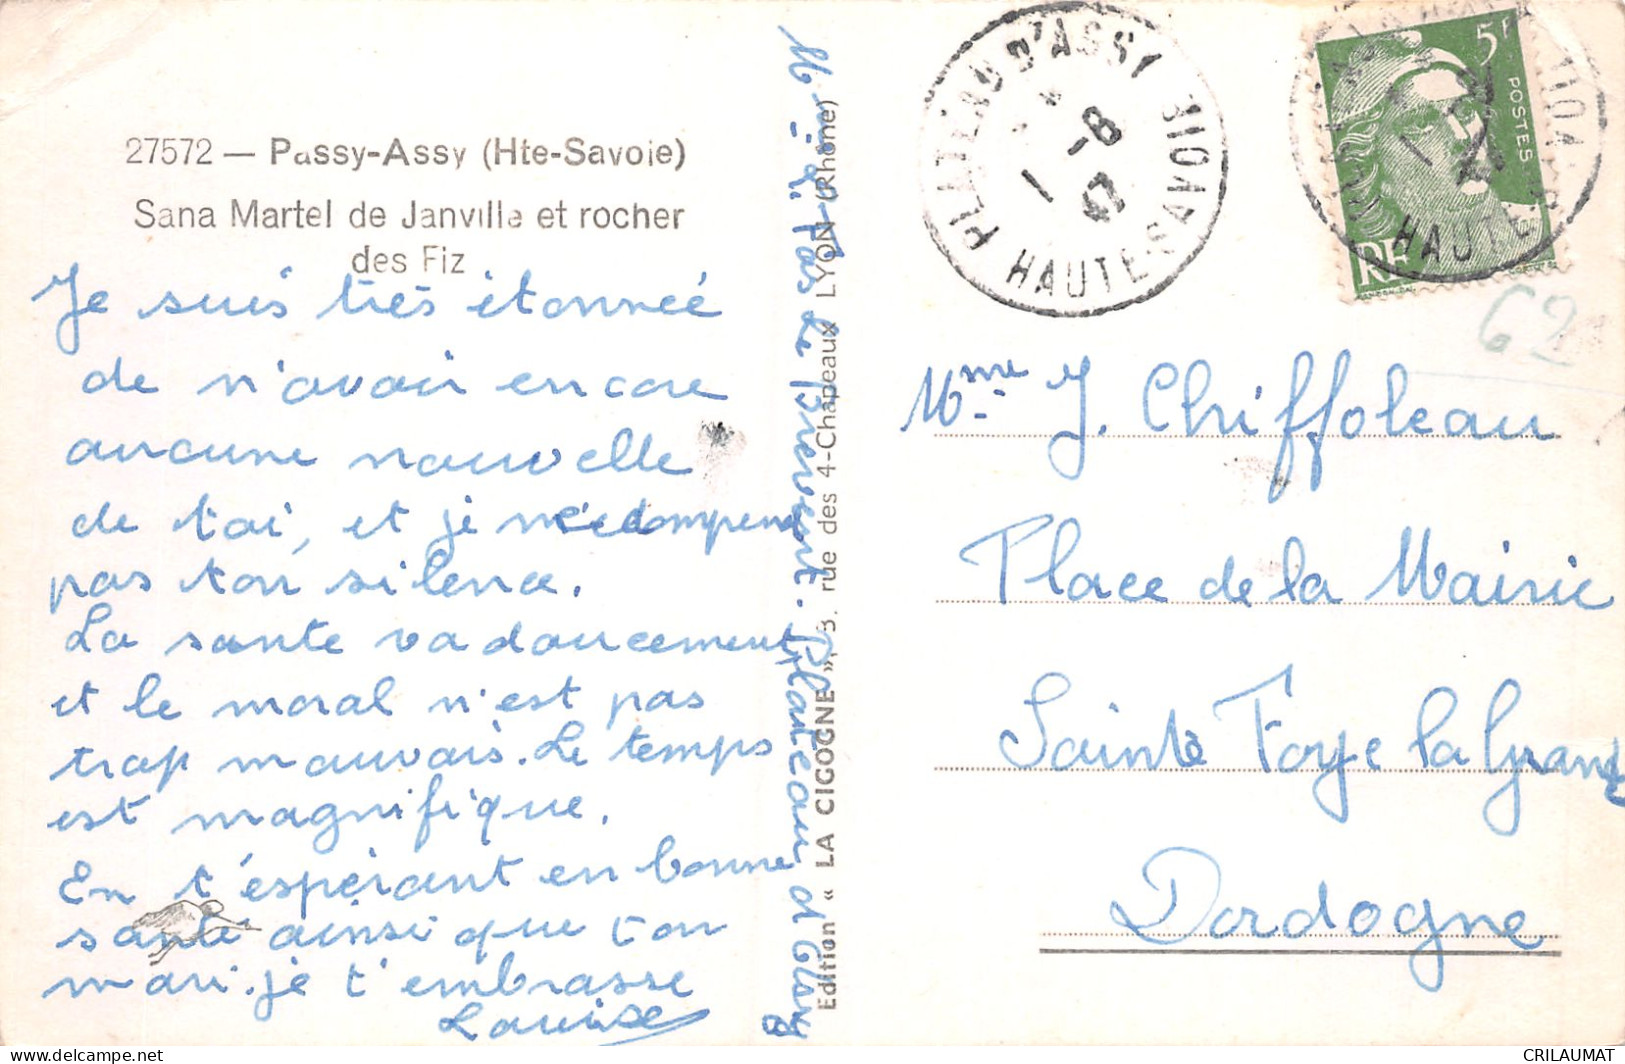 27572 — Passy-Assy (Hte-Savoie)
Sana Martel de Janville et rocher
des Fiz
Je suis très étonnée
de n'avoir encore
aucune nouvelle
de toi, et je ne compend
pas ton silence.
La santé va doucement
et le moral n'est pas
trop mauvais. Le temps
est magnifique.
En t'espérant en bonne
santé ainsi que ton
mari. je t'embrasse
Louise
Plateau d'Assy
Edition « LA CIGOGNE », 3, rue des 4-Chapeaux LYON (Rhône)
PLATEAU D'ASSY
1 -8
47
HAUTE-SAVOIE
5F
POSTES
RF
HAUTE-SAVOIE
62
Mme J. Chiffoleau
Place de la Mairie
Sainte Foye la Grande
Dordogne
delcampe.net
CRILAUMAT